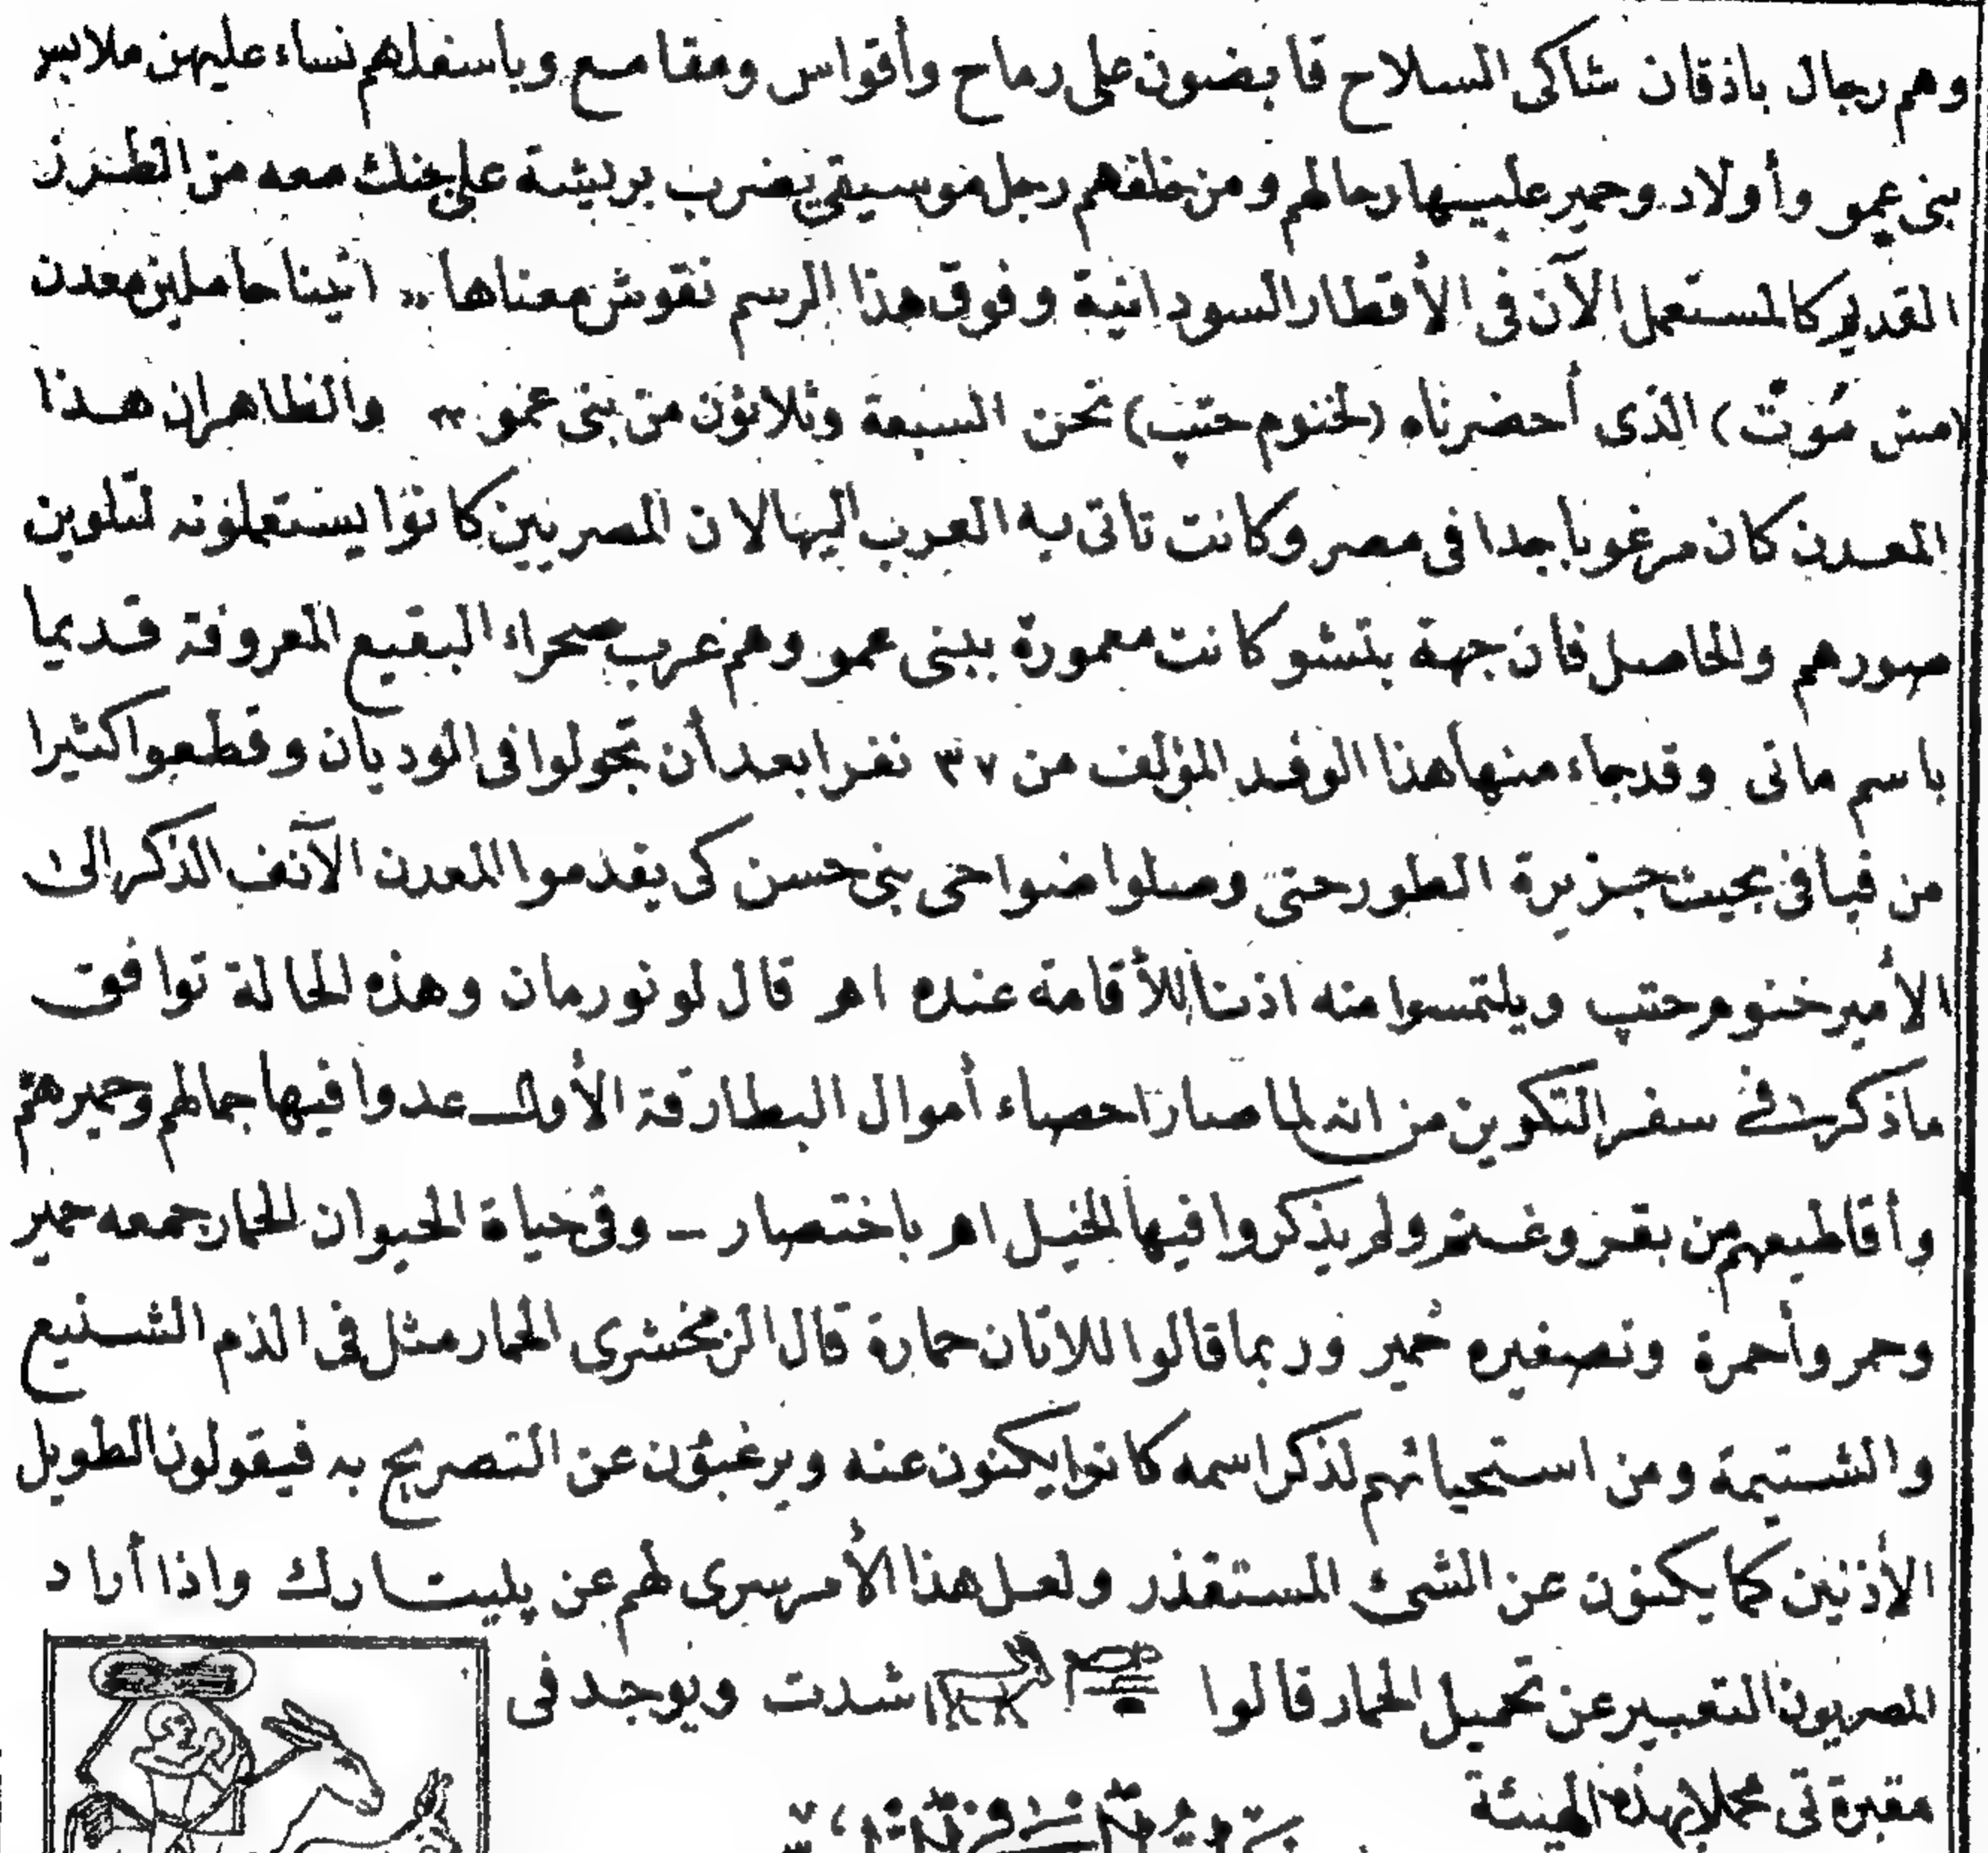 وهم رجال باذقان شاكى السلاح قابضون على رماح وأقواس ومقامع وباسفلهم نساء عليهن ملابس
بنى عمو وأولاد وحمير عليها رحالهم ومن خلفهم رجل موسيقى يضرب بريشة على جنك معه من الطرز
القديم كالمستعمل الآن فى الأقطار السودانية وفوق هذا الرسم نقوش معناها « اتينا حاملين معدن
(مش موت) الذى أحضرناه (لخنوم حتپ) نحن السبعة وثلاثون من بنى عمو » والظاهر ان هذا
المعدن كان مرغوبا جدا فى مصر وكانت تاتى به العرب اليها لان المصريين كانوا يستعملونه لتلوين
صورهم والحاصل فان جهة بتشو كانت معمورة ببنى عمو وهم عرب صحراء البقيع المعروفة قديما
باسم ماتى وقد جاء منها هذا الوفد المؤلف من ٣٧ نفرا بعد أن تجولوا فى الوديان وقطعوا كثيرا
من فيافى بحيث جزيرة الطور حتى وصلوا ضواحى بنى حسن كى يقدموا المعدن الآنف الذكر الى
الأمير خنوم حتپ ويلتمسوا منه اذنا للأقامة عنده اهـ قال لونورمان وهذه الحالة توافق
ماذكر فى سفر التكوين من انه لما صار احصاء أموال البطارقة الأول عدوا فيها جمالهم وحميرهم
وأقاطيعهم من بقر وغنم ولم يذكروا فيها الخيل اهـ باختصار – وفى حياة الحيوان الحمار جمعه حمير
وحمر وأحمرة وتصغيره حُمير وربما قالوا للاتان حمارة قال الزمخشرى الحمار مثل فى الذم الشنيع
والشتيمة ومن استحيائهم لذكر اسمه كانوا يكنون عنه ويرغبون عن التصريح به فيقولون الطويل
الأذنين كما يكنون عن الشئ المستقذر ولعل هذا الأمر سرى لهم عن پليتارك واذا أراد
المصريون التعبير عن تحميل الحمار قالوا شدت ويوجد فى
مقبرة تى محملا بهذه الهيئة